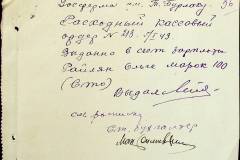 Госферма им. Т. Бурлову 56
Расходный кассовый
ордер № 213. 7/5 43
Выдано в счет зарплаты
Райлян Елые марок 100
(Сто)
Выдал
ст. бухгалтер